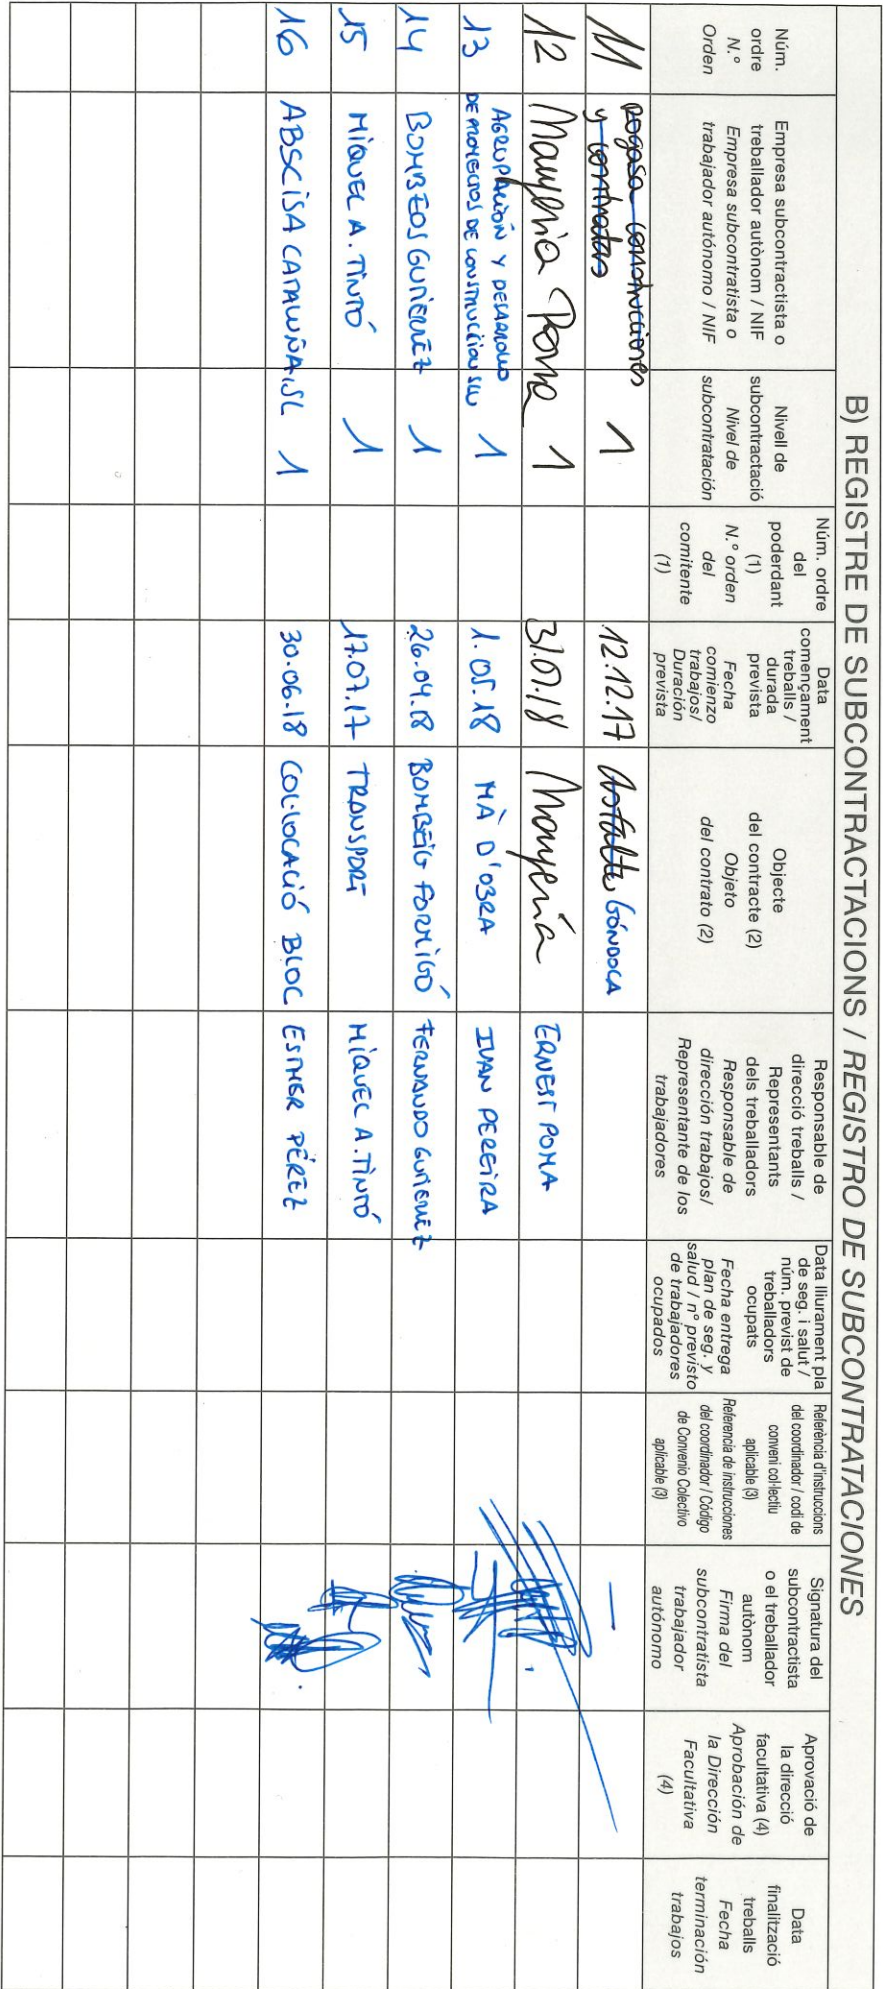 B) REGISTRE DE SUBCONTRACTACIONS / REGISTRO DE SUBCONTRATACIONES
Núm.
ordre
N.º
Orden
Empresa subcontractista o
treballador autònom / NIF
Empresa subcontratista o
trabajador autónomo / NIF
Nivell de
subcontractació
Nivel de
subcontratación
Núm. ordre
del
poderdant
(1)
N.º orden
del
comitente
(1)
Data
començament
treballs /
durada
prevista
Fecha
comienzo
trabajos/
Duración
prevista
Objecte
del contracte (2)
Objeto
del contrato (2)
Responsable de
direcció treballs /
Representants
dels treballadors
Responsable de
dirección trabajos/
Representante de los
trabajadores
Data lliurament pla
de seg. i salut /
núm. previst de
treballadors
ocupats
Fecha entrega
plan de seg. y
salud / nº previsto
de trabajadores
ocupados
Referència d'instruccions
del coordinador / codi de
conveni col·lectiu
aplicable (3)
Referencia de instrucciones
del coordinador / Código
de Convenio Colectivo
aplicable (3)
Signatura del
subcontractista
o el treballador
autònom
Firma del
subcontratista
trabajador
autónomo
Aprovació de
la direcció
facultativa (4)
Aprobación de
la Dirección
Facultativa
(4)
Data
finalització
treballs
Fecha
terminación
trabajos
11 rogasa construcciones y contratas 1 12.12.17 Asfalto GÓNDOLA —
12 Manyeria Poma 1 31.01.18 Manyeria ERNEST POMA
13 AGRUPACIÓN Y DESARROLLO DE PROYECTOS DE CONSTRUCCION SLU 1 1.05.18 MÀ D'OBRA IVAN PEREIRA
14 BOMBEOS GUTIERREZ 1 26.04.18 BOMBEIG FORMIGÓ FERNANDO GUTIERREZ
15 MIQUEL A. TINTÓ 1 17.07.17 TRANSPORT MIQUEL A. TINTÓ
16 ABSCISA CATALUÑA, SL 1 30.06.18 COL·LOCACIÓ BLOC ESTHER PÉREZ